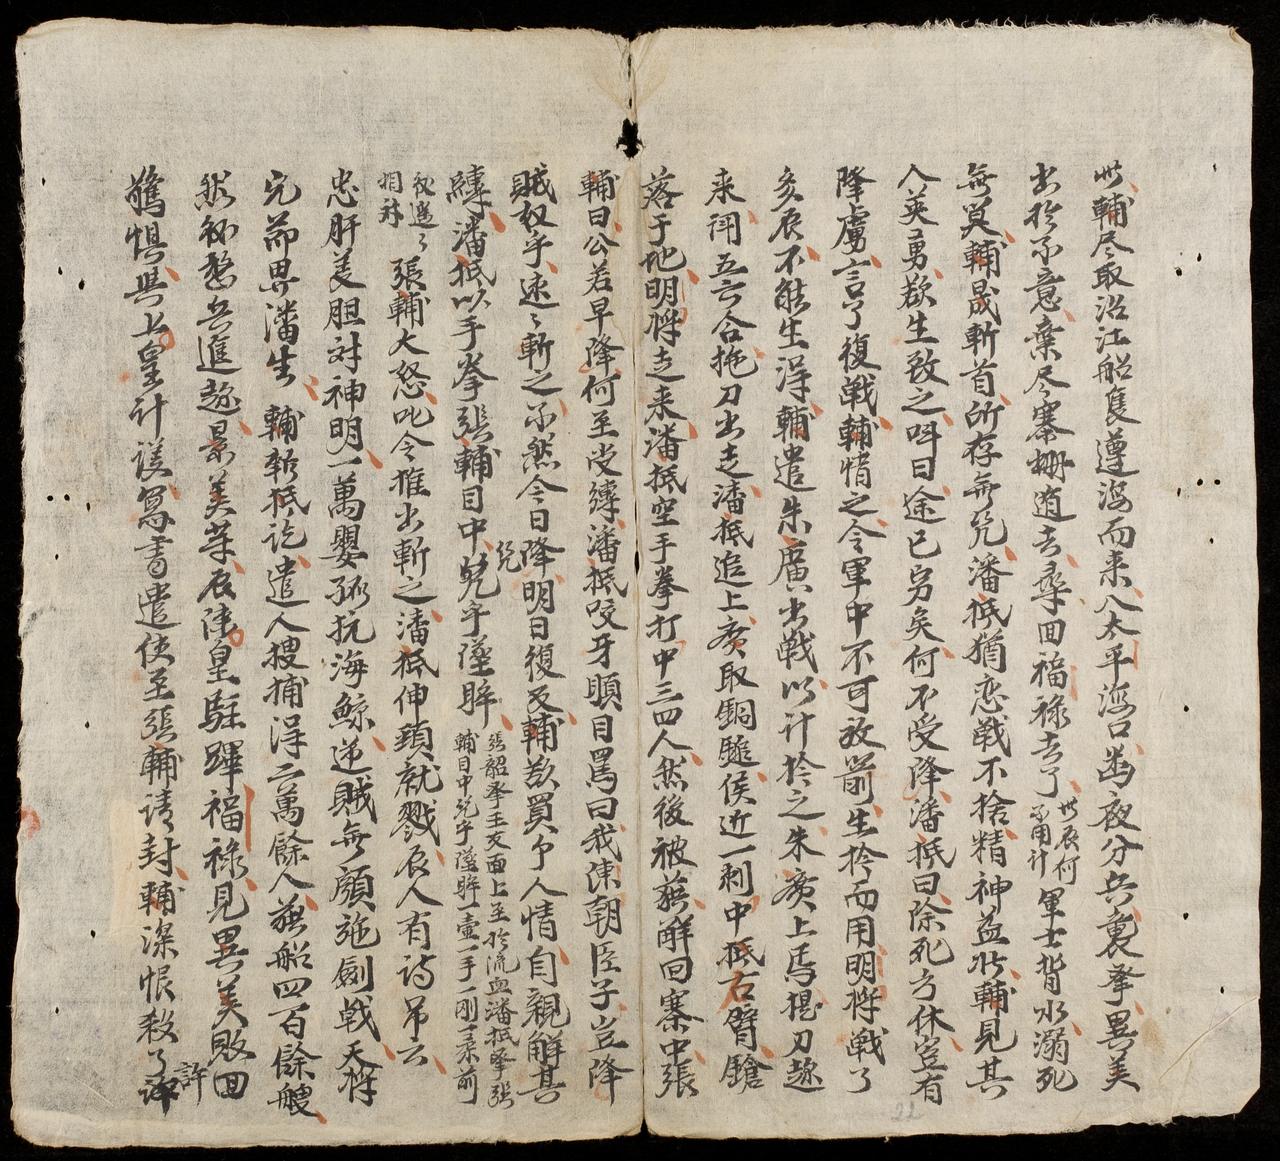 此輔尽取沿江船隻遵海而来入太平海口密夜分兵裏拏異美
出於不意棄尽寨柵逍去尋回福祿去了此辰何不用計軍士背水溺死
無算輔晟斬首所存無几潘抵猶恋戰不捨精神益壮輔見其
人英勇欲生致之呼曰途已穷矣何不受降潘抵曰除死方休豈有
降虜言了復戰輔惜之令軍中不可放箭生擒而用明将戰了
多辰不能生淂輔遣朱廣出戰以計於之朱廣上馬提刀趂
来闘五六合拖刀出走潘抵追上廣取銅鎚侯近一刺中抵右臂鎗
落于地明将走来潘抵空手拳打中三四人然後被获解回寨中張
輔曰公若早降何至受縛潘抵咬牙瞋目罵曰我陳朝臣子豈降
賊奴乎速〻斬之不然今日降明日復反輔欲買卜人情自親觧其
縛潘抵以手拳張輔目中兒乎墜眸張韶拳王文面上至於流血潘抵拳張輔目中兒乎墜眸一壷一手一剛一柔前後遥〻相对
几
張輔大怒叱令推出斬之潘抵伸頸就戮辰人有诗吊云
忠肝义胆对神明一萬嬰孩抗海鯨逆賊無顔施劍戟天将
完節畀潘生 輔斬抵訖遣人搜捕淂六萬餘人获船四百餘艘
然初愁兵進趂景異等辰陳皇駐蹕福祿見異美敗回
驚惧與上皇计議寫書遣使至張輔请封輔深恨殺了
許